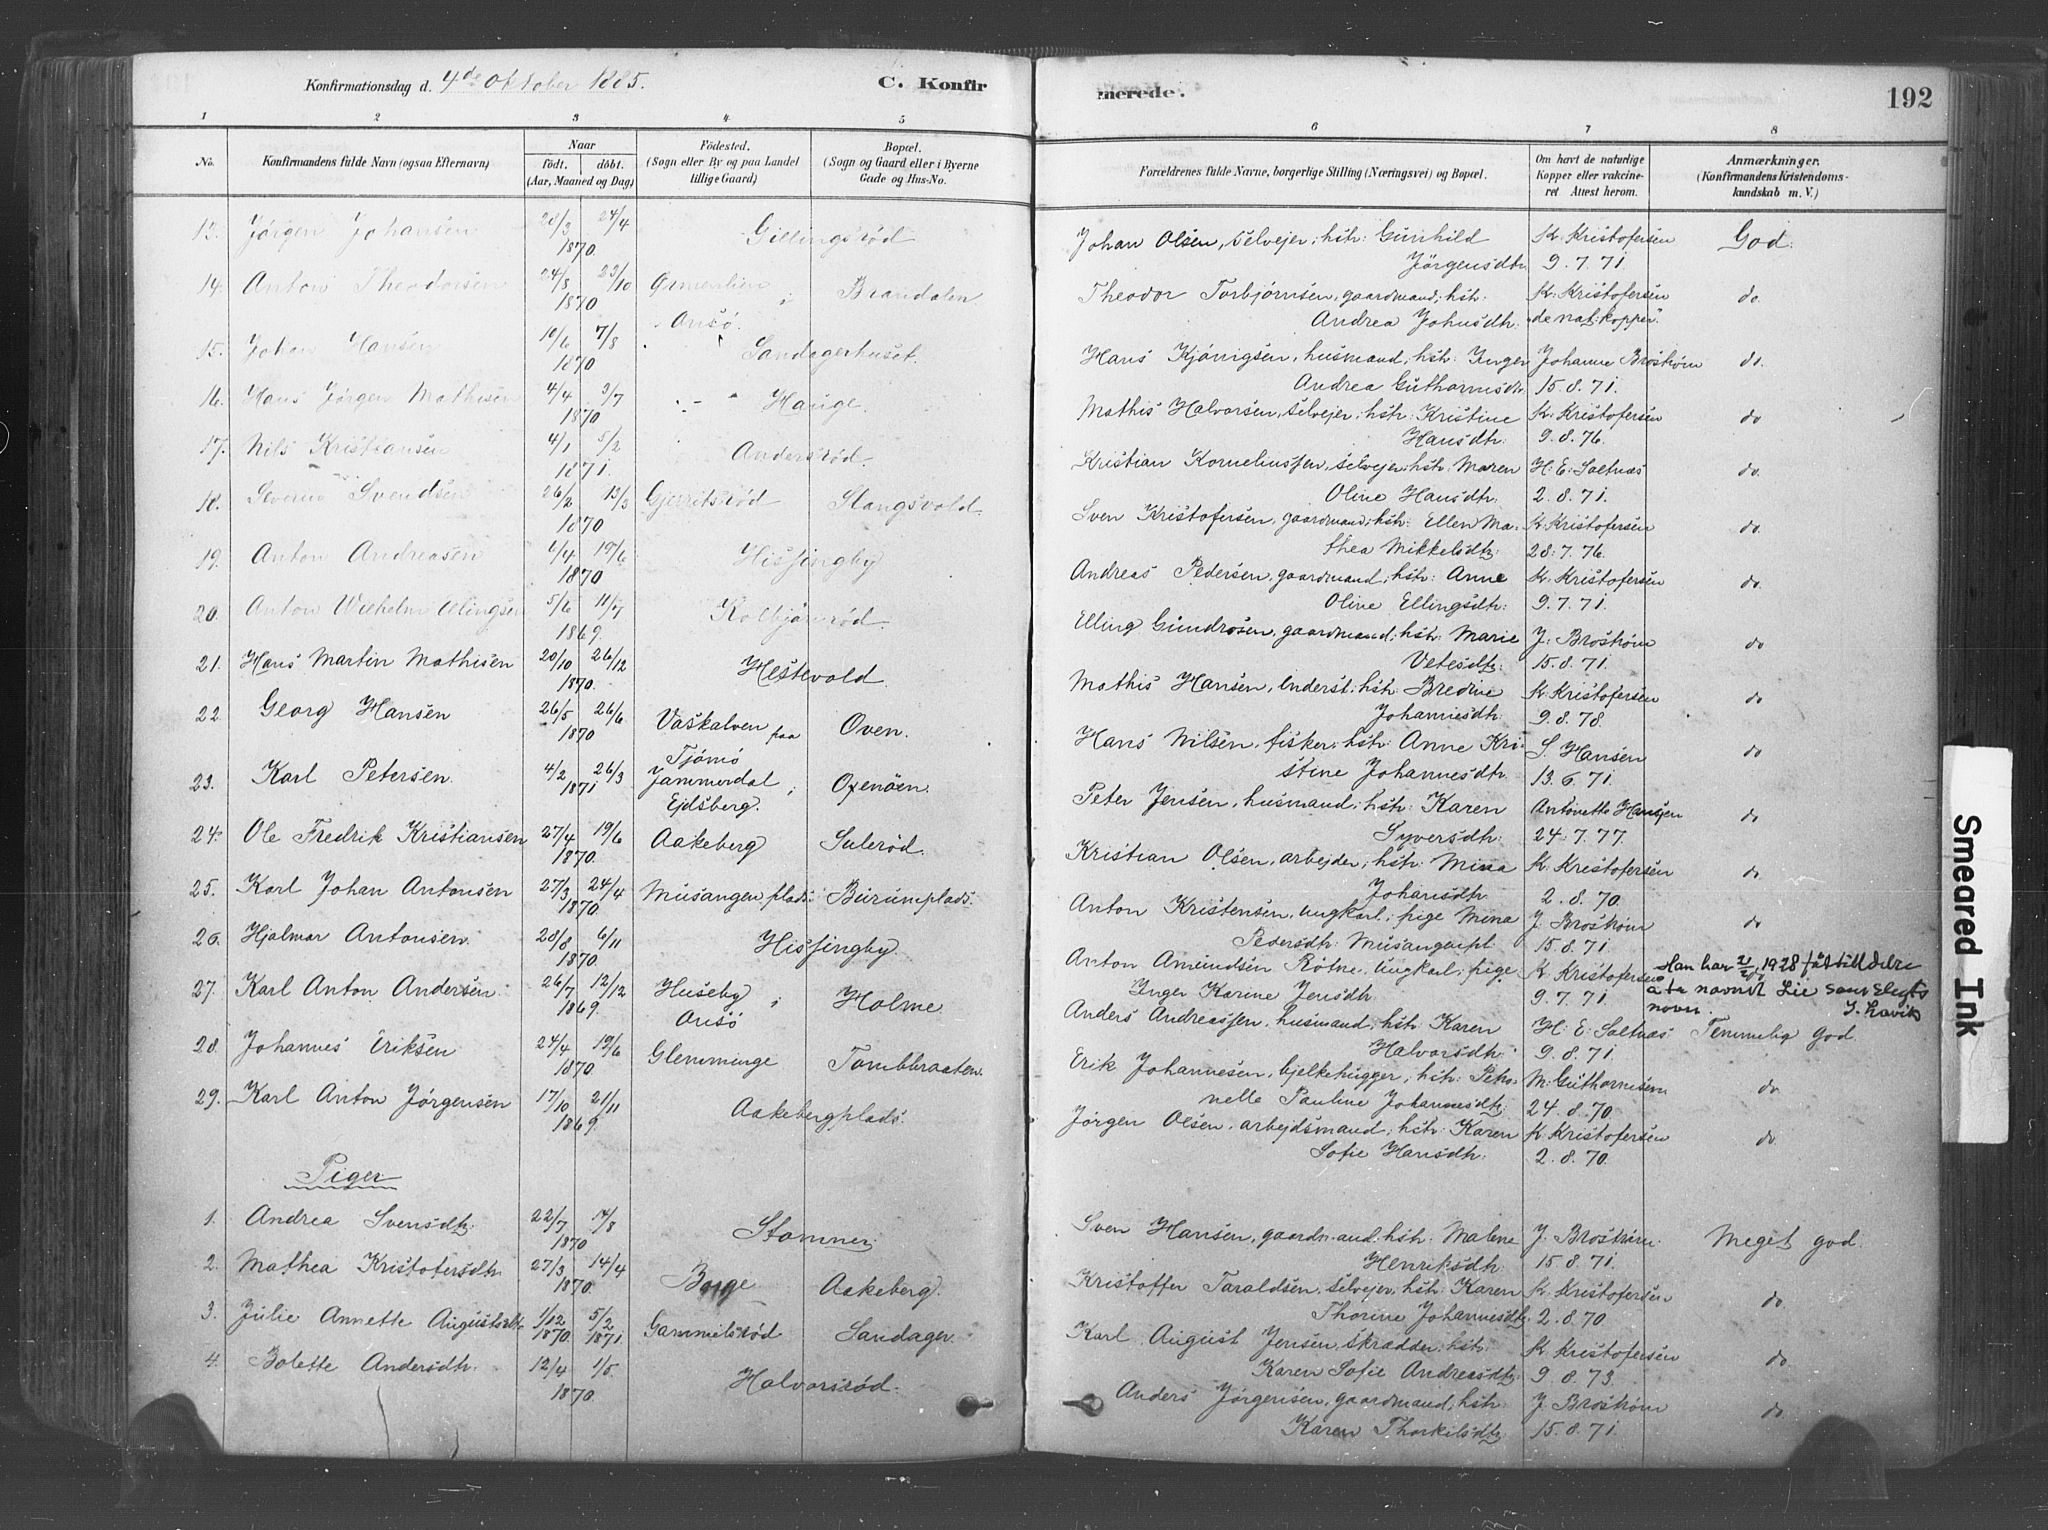 Konfirmationsdag d. 4de Oktober 1885.
C. Konfirmerede.
192
1 2 3 4 5 6 7 8
No.
Konfirmandens fulde Navn (ogsaa Efternavn)
Naar
födt. döbt.
(Aar, Maaned og Dag)
Födested.
(Sogn eller By og paa Landet
tillige Gaard)
Bopæl.
(Sogn og Gaard eller i Byerne
Gade og Hus-No.
Forældrenes fulde Navne, borgerlige Stilling (Næringsvei) og Bopæl.
Om havt de naturlige
Kopper eller vakcine-
ret Attest herom.
Anmærkninger.
(Konfirmandens Kristendoms-
kundskab m. V.)
13. Jørgen Johansen 28/3 24/4 1870 Gillingsrød Johan Olsen, selvejer; hstr: Gunhild Jørgensdtr K. Kristofersen 9.7.71. God.
14. Anton Theodorsen 24/8 23/10 1870 i Onsø. Brandalen Theodor Torbjørnsen, gaardmand; hstr: Andrea Johnsdtr. K. Kristofersen "de nat: kopper". do.
15. Johan Hansen 10/6 7/8 1870 Sandagerhuset. Hans Kjønigsen, husmand, hstr: Inger Andrea Guthormsdtr Johanne Brostrøm 15.8.71. do.
16. Hans Jørgen Mathisen 4/4 3/7 1870 - " - Hauge. Mathis Halvorsen, selvejer; hstr: Kristine Hansdtr: K. Kristofersen 9.8.76. do
17. Nils Kristiansen 4/1 5/2 1871. Andersrød. Kristian Korneliussen, selvejer; hstr: Maren Oline Hansdtr: H. E. Saltnæs 2.8.71. do.
18. Severin Svendsen 26/2 13/3 1870 Gjerritsrød Slangsvold. Sven Kristofersen, gaardmand; hstr: Ellen Mathea Mikkelsdtr: K. Kristofersen 28.7.76. do.
19. Anton Andreasen 6/4 19/6 1870 Hissingby Andreas Pedersen, gaardmand; hstr: Anne Oline Ellingsdtr: K. Kristofersen 9.7.71. do.
20. Anton Wilhelm Ellingsen 5/6 11/7 1869. Kolbjørnsrød. Elling Gundrosen, gaardmand; hstr: Marie J. Brostrøm 15.8.71. do
21. Hans Martin Mathisen 20/10 26/12 1870. Hestevold. Mathis Hansen, Inderst; hstr: Bredine Johannesdtr: K. Kristofersen 9.8.78. do
22. Georg Hansen 26/5 26/6 1870 Vaskalven paa Tjømø Oven. Hans Nilsen, fisker; hstr: Anne Kristine Johannesdtr: S. Hansen 13.6.71. do
23. Karl Petersen. 4/2 26/3 1871 Jammerdal i Ejdsberg. Oxenøen. Peter Jensen, husmand; hstr: Karen Syversdtr: Antonette Hansen 24.7.77. do
24. Ole Fredrik Kristiansen 27/4 19/6 1870. Aakeberg Sulerød. Kristian Olsen, arbejder; hstr: Mina Johansdtr: K. Kristofersen 2.8.70. do
25. Karl Johan Antonsen 27/3 24/4 1870. Musangen plads: Burumplads. Anton Kristensen, ungkarl; pige Mina Pedersdtr: Musangenpl. J. Brostrøm 15.8.71. do
26. Hjalmar Antonsen. 28/8 6/11 1870. Hissingby. Anton Amundsen Rötne, Ungkarl; pige Inger Karine Jensdtr. K. Kristofersen 9.7.71.
Han har 2/2, 1928 fåt tilladelse å ta navnet Lie som slegtsnavn. J. Lavik
27. Karl Anton Andersen. 26/7 12/12 1869. Huseby i Onsø Holme. Anders Andreassen, husmand, hstr: Karen Halvorsdtr: H. E. Saltnæs 9.8.71. Temmelig god.
28. Johannes Eriksen 24/4 19/6 1870 Glemminge Tombbraaten. Erik Johannesen, bjelkehugger; hstr: Petronelle Pauline Johannesdtr: M. Guthormsen 24.8.70. do.
29. Karl Anton Jørgensen 17/10 21/11 1869. Aakebergplads. Jørgen Olsen, arbejdsmand; hstr: Karen Sofie Hansdtr: K. Kristofersen 2.8.70. do.
Piger
1. Andrea Svensdtr. 22/7 14/8 1870 Stomner: Sven Hansen, gaardmand; hstr: Malene Henriksdtr. J. Brostrøm. 15.8.71. Meget god.
2. Mathea Kristofersdtr. 27/3 14/4 1870. Aakeberg. Kristoffer Taraldsen, selvejer, hstr: Karen Thorine Johannesdtr. K. Kristofersen 2.8.70 do.
3. Julie Annette Augustsdtr 1/12 1870. 5/2 1871. Gammelsrød Sandager. Karl August Jensen, skrædder; hstr: Karen Sofie Andreasdtr: K. Kristofersen 9.8.73. do.
4. Bolette Andersdtr. 12/4 1/5 1870. Halvorsrød. Anders Jørgensen, gaardmand, hstr: Karen Thorkilsdtr: J. Brostrøm 15.8.71. do.
Smeared Ink